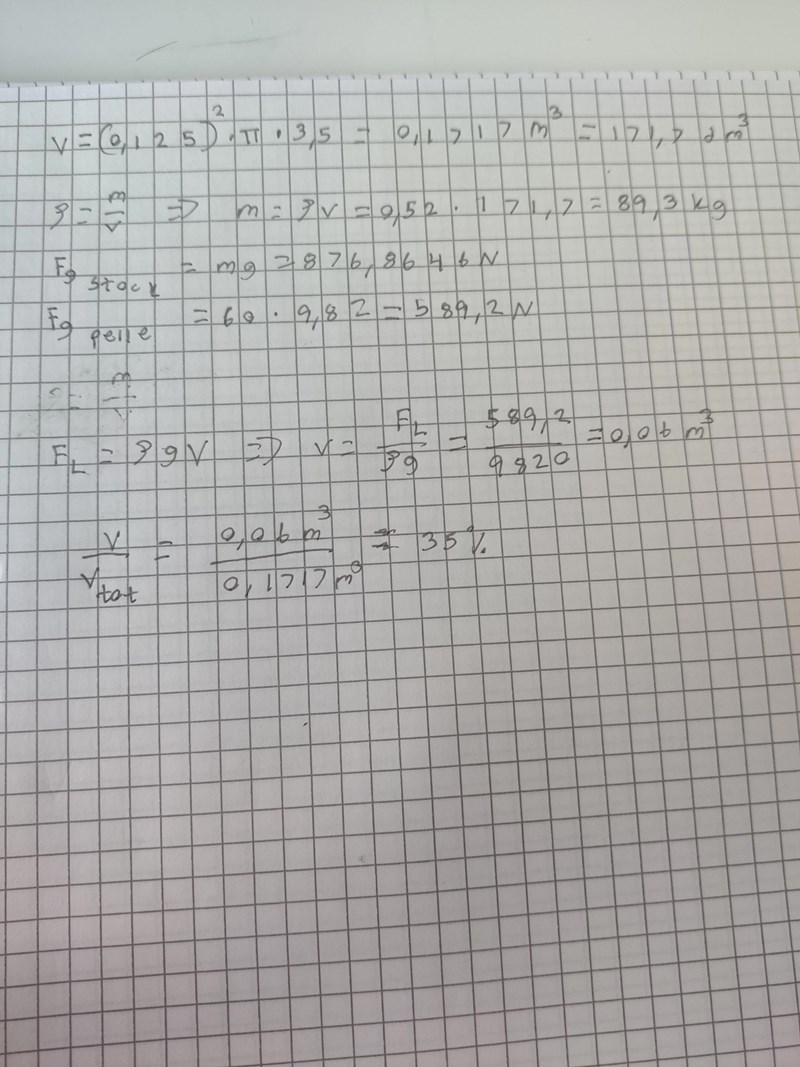 V = (0,125)² · π · 3,5 = 0,1717 m³ = 171,7 dm³
ρ = m/V ⇒ m = ρV = 0,52 · 171,7 = 89,3 kg
Fg stock = mg = 876,8646 N
Fg pelle = 60 · 9,82 = 589,2 N
= m/V
F_L = ρgV ⇒ V = F_L/ρg = 589,2/9820 = 0,06 m³
V/V_tot = 0,06 m³/0,1717 m³ ≈ 35 %